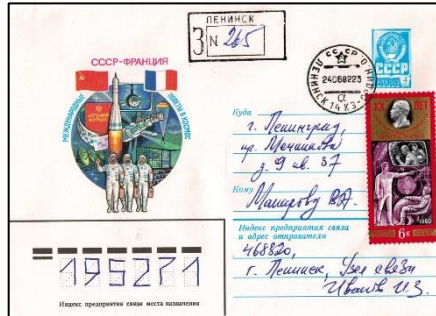 СССР-ФРАНЦИЯ
МЕЖДУНАРОДНЫЕ ПОЛЕТЫ В КОСМОС
ЛЕНИНСК
З N 265
СССР
ЛЕНИНСК
24068223
СССР
XX ЛЕТ
1980
ПОЧТА 6к
Куда
г. Ленинград,
пр. Мечникова
д. 9 кв. 37
Кому
Машрову В.А.
Индекс предприятия связи
и адрес отправителя
468820,
г. Ленинск, Узел связи
Иванов И.З.
195271
Индекс предприятия связи места назначения